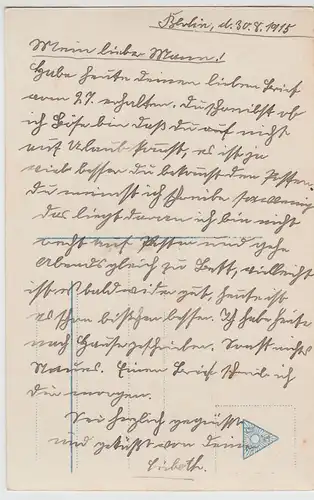 Berlin, d. 30.8.1915
Mein lieber Mann!
Habe heute deinen lieben Brief
vom 27. erhalten. Du schreibst ob
ich böse bin daß du auf nicht
auf Urlaub kommst, es ist ja
viel besser du bekommst den Posten.
du meinst ich schreibe so wenig
das liegt daran ich bin nicht
recht auf Posten und gehe
Abends gleich zu Bett, vielleicht
ist es bald wieder gut, heute ist
es schon bischen besser. Ich habe heute
nach Hause geschrieben. Sonst nichts
Neues. Einen Brief schreib ich
dir morgen.
Sei herzlich gegrüßt
und geküßt von deine
Lisbeth.